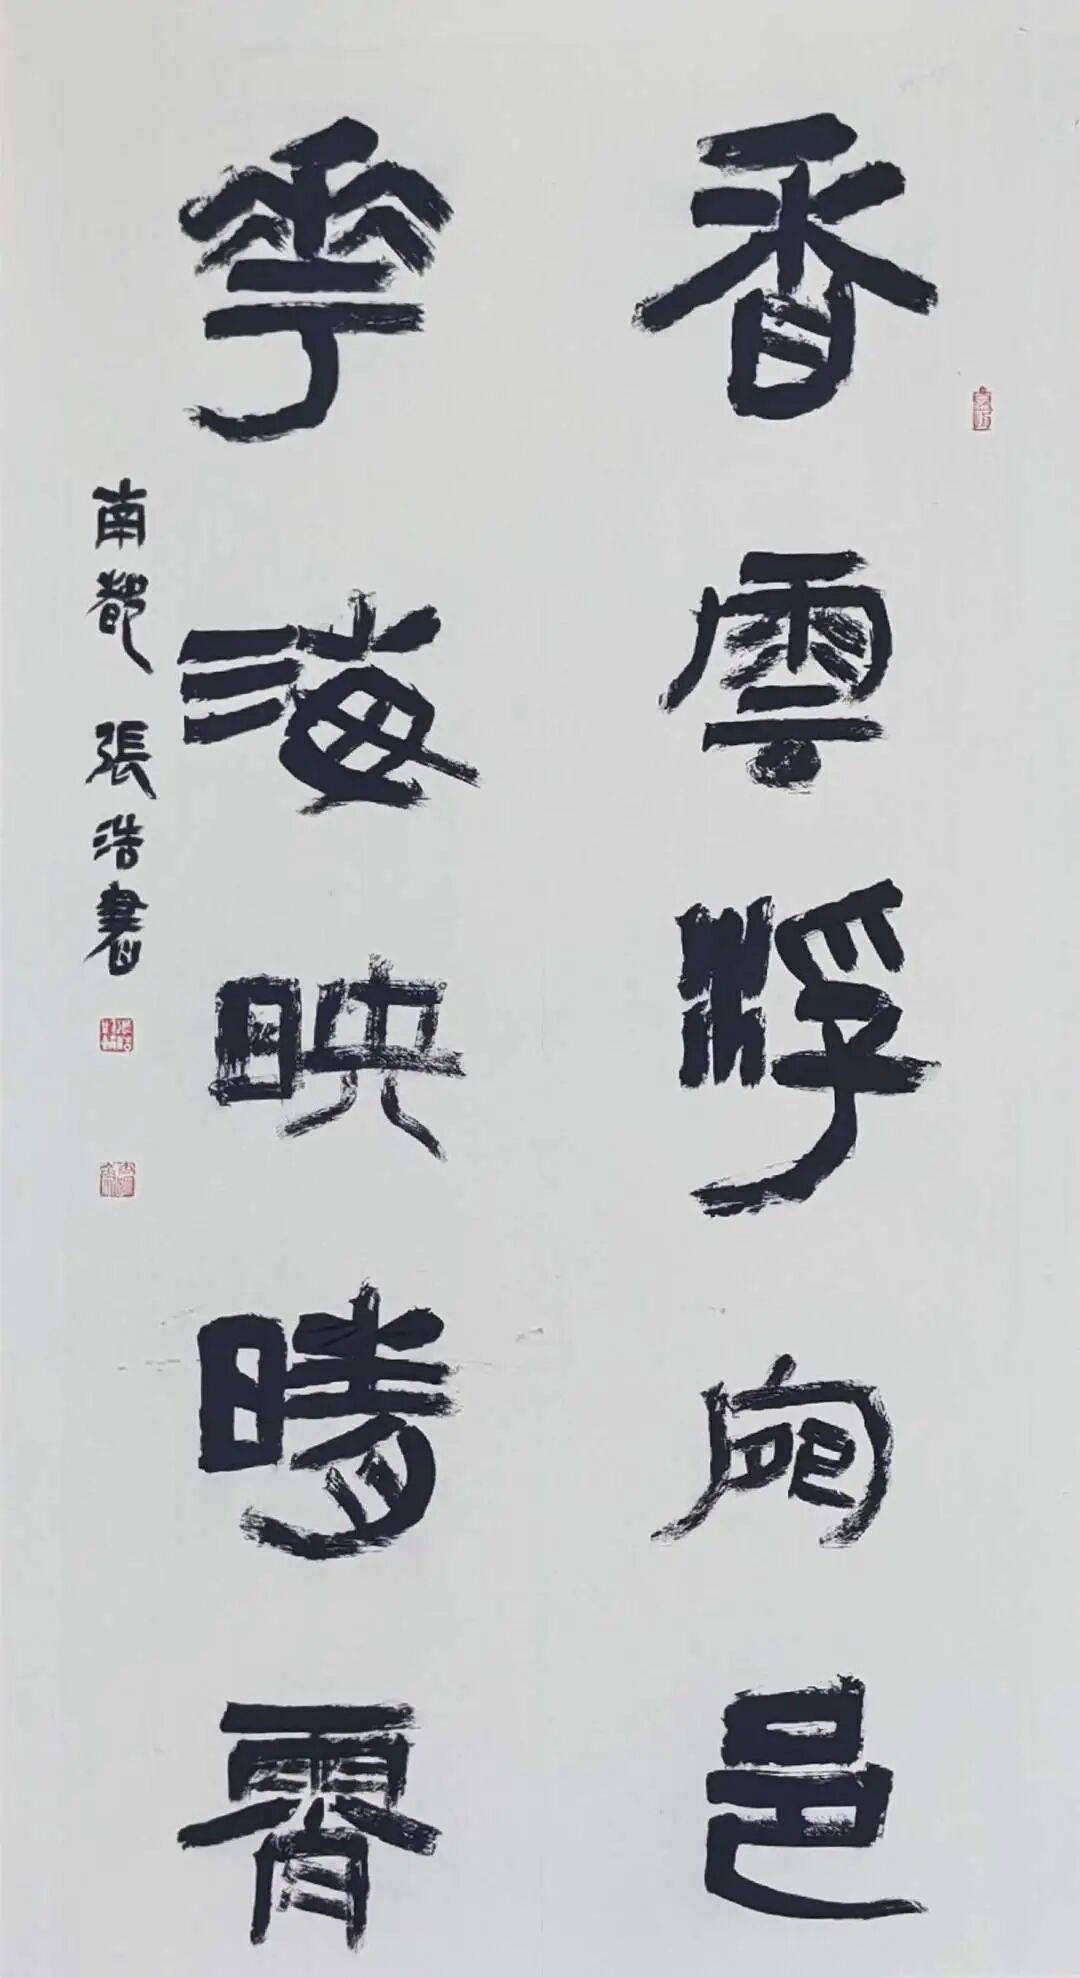 香雲浮宛邑
華海映晴霄
南都 張浩書